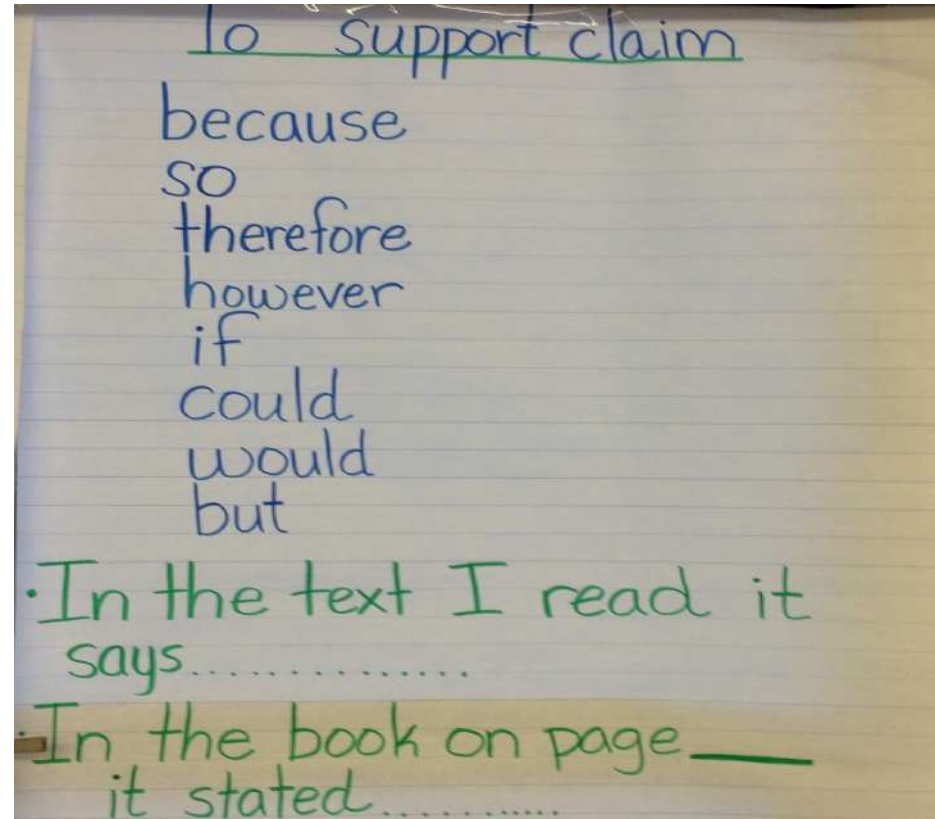 To support claim
because
so
therefore
however
if
could
would
but
·In the text I read it
says..............
·In the book on page____
it stated...........